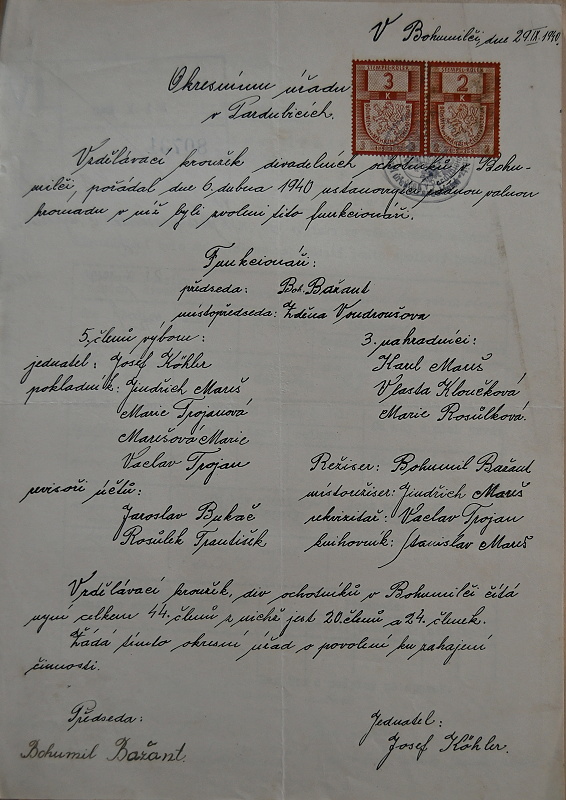 V Bohumilči, dne 29.IX.1940.
STEMPEL-KOLEK STEMPEL-KOLEK
3 2
K K
Okresnímu úřadu
v Pardubicích.
Vzdělávací kroužek divadelních ochotníků v Bohu-
milči, pořádal dne 6. dubna 1940 ustanovující valnou
hromadu v níž byli zvoleni tito funkcionáři.
Funkcionáři:
předseda: Boh. Bažant
místopředseda: Zděna Vondroušova
5. členů výboru:
jednatel: Josef Köhler
pokladník: Jindřich Mareš
Marie Trojanová
Marešová Marie
Vaclav Trojan
revisoři účtů:
Jaroslav Bukač
Rosůlek František
3. nahradníci:
Karel Mareš
Vlasta Kloučková
Marie Rosůlková.
Režiser: Bohumil Bažant
místorežiser: Jindřich Mareš
rekvizitář: Vaclav Trojan
knihovník: Stanislav Mareš
Vzdělávací kroužek, div ochotníků v Bohumilči čítá
nyní celkem 44. členů z nichž jest 20. členů a 24. členek.
Žádá tímto okresní úřad o povolení ku zahajení
činnosti.
Předseda:
Bohumil Bažant.
Jednatel:
Josef Köhler.